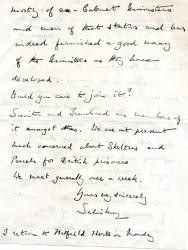 mostly of ex-Cabinet Ministers
and men of that status and has
indeed furnished a good many
of the Ministers as they have
developed.
Would you care to join it?
and are members of
it amongst them. We are at present
much concerned about Shelters and
Parcels for British prisoners
We meet generally once a week.
Yours very sincerely
Salisbury
I return to Hatfield on Monday